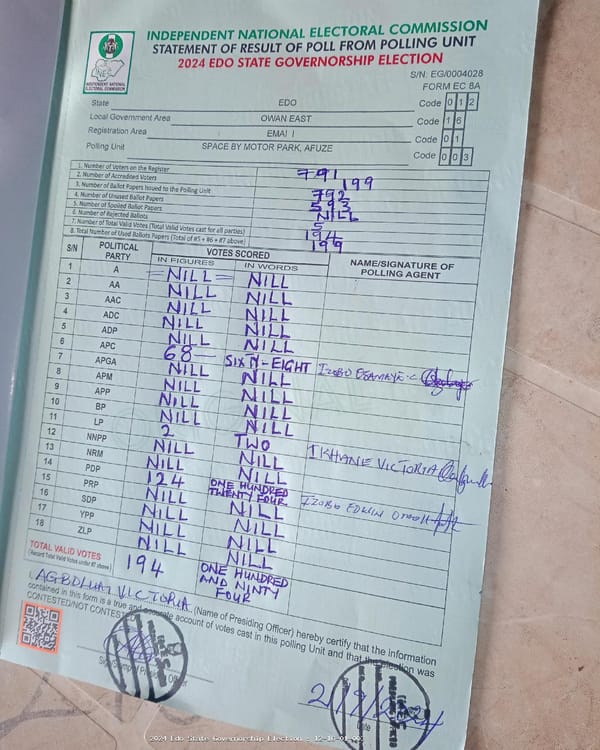 INDEPENDENT NATIONAL ELECTORAL COMMISSION
STATEMENT OF RESULT OF POLL FROM POLLING UNIT
2024 EDO STATE GOVERNORSHIP ELECTION
INDEPENDENT NATIONAL ELECTORAL COMMISSION
S/N: EG/0004028
FORM EC 8A
State EDO Code 0 1 2
Local Government Area OWAN EAST Code 1 6
Registration Area EMAI I Code 0 1
Polling Unit SPACE BY MOTOR PARK, AFUZE Code 0 0 3
1. Number of Voters on the Register 791
2. Number of Accredited Voters 199
3. Number of Ballot Papers Issued to the Polling Unit 792
4. Number of Unused Ballot Papers 593
5. Number of Spoiled Ballot Papers NILL
6. Number of Rejected Ballots 5
7. Number of Total Valid Votes (Total Valid Votes cast for all parties) 194
8. Total Number of Used Ballots Papers (Total of #5 + #6 + #7 above) 199
S/N POLITICAL PARTY VOTES SCORED NAME/SIGNATURE OF POLLING AGENT
IN FIGURES IN WORDS
1 A =NILL= NILL
2 AA NILL NILL
3 AAC NILL NILL
4 ADC NILL NILL
5 ADP NILL NILL
6 APC 68 SIXTY-EIGHT IZOBO
7 APGA NILL NILL
8 APM NILL NILL
9 APP NILL NILL
10 BP NILL NILL
11 LP 2 TWO IKHANE VICTORIA
12 NNPP NILL NILL
13 NRM NILL NILL
14 PDP 124 ONE HUNDRED TWENTY FOUR IZOBO EDWIN
15 PRP NILL NILL
16 SDP NILL NILL
17 YPP NILL NILL
18 ZLP NILL NILL
TOTAL VALID VOTES 194 ONE HUNDRED AND NINTY FOUR
(Record Total Valid Votes under #7 above)
I, VICTORIA (Name of Presiding Officer) hereby certify that the information
contained in this form is a true and accurate account of votes cast in this polling Unit and that the election was
CONTESTED/NOT CONTESTED
Officer
Date
2024 Edo State Governorship Election - 12-16-01-003